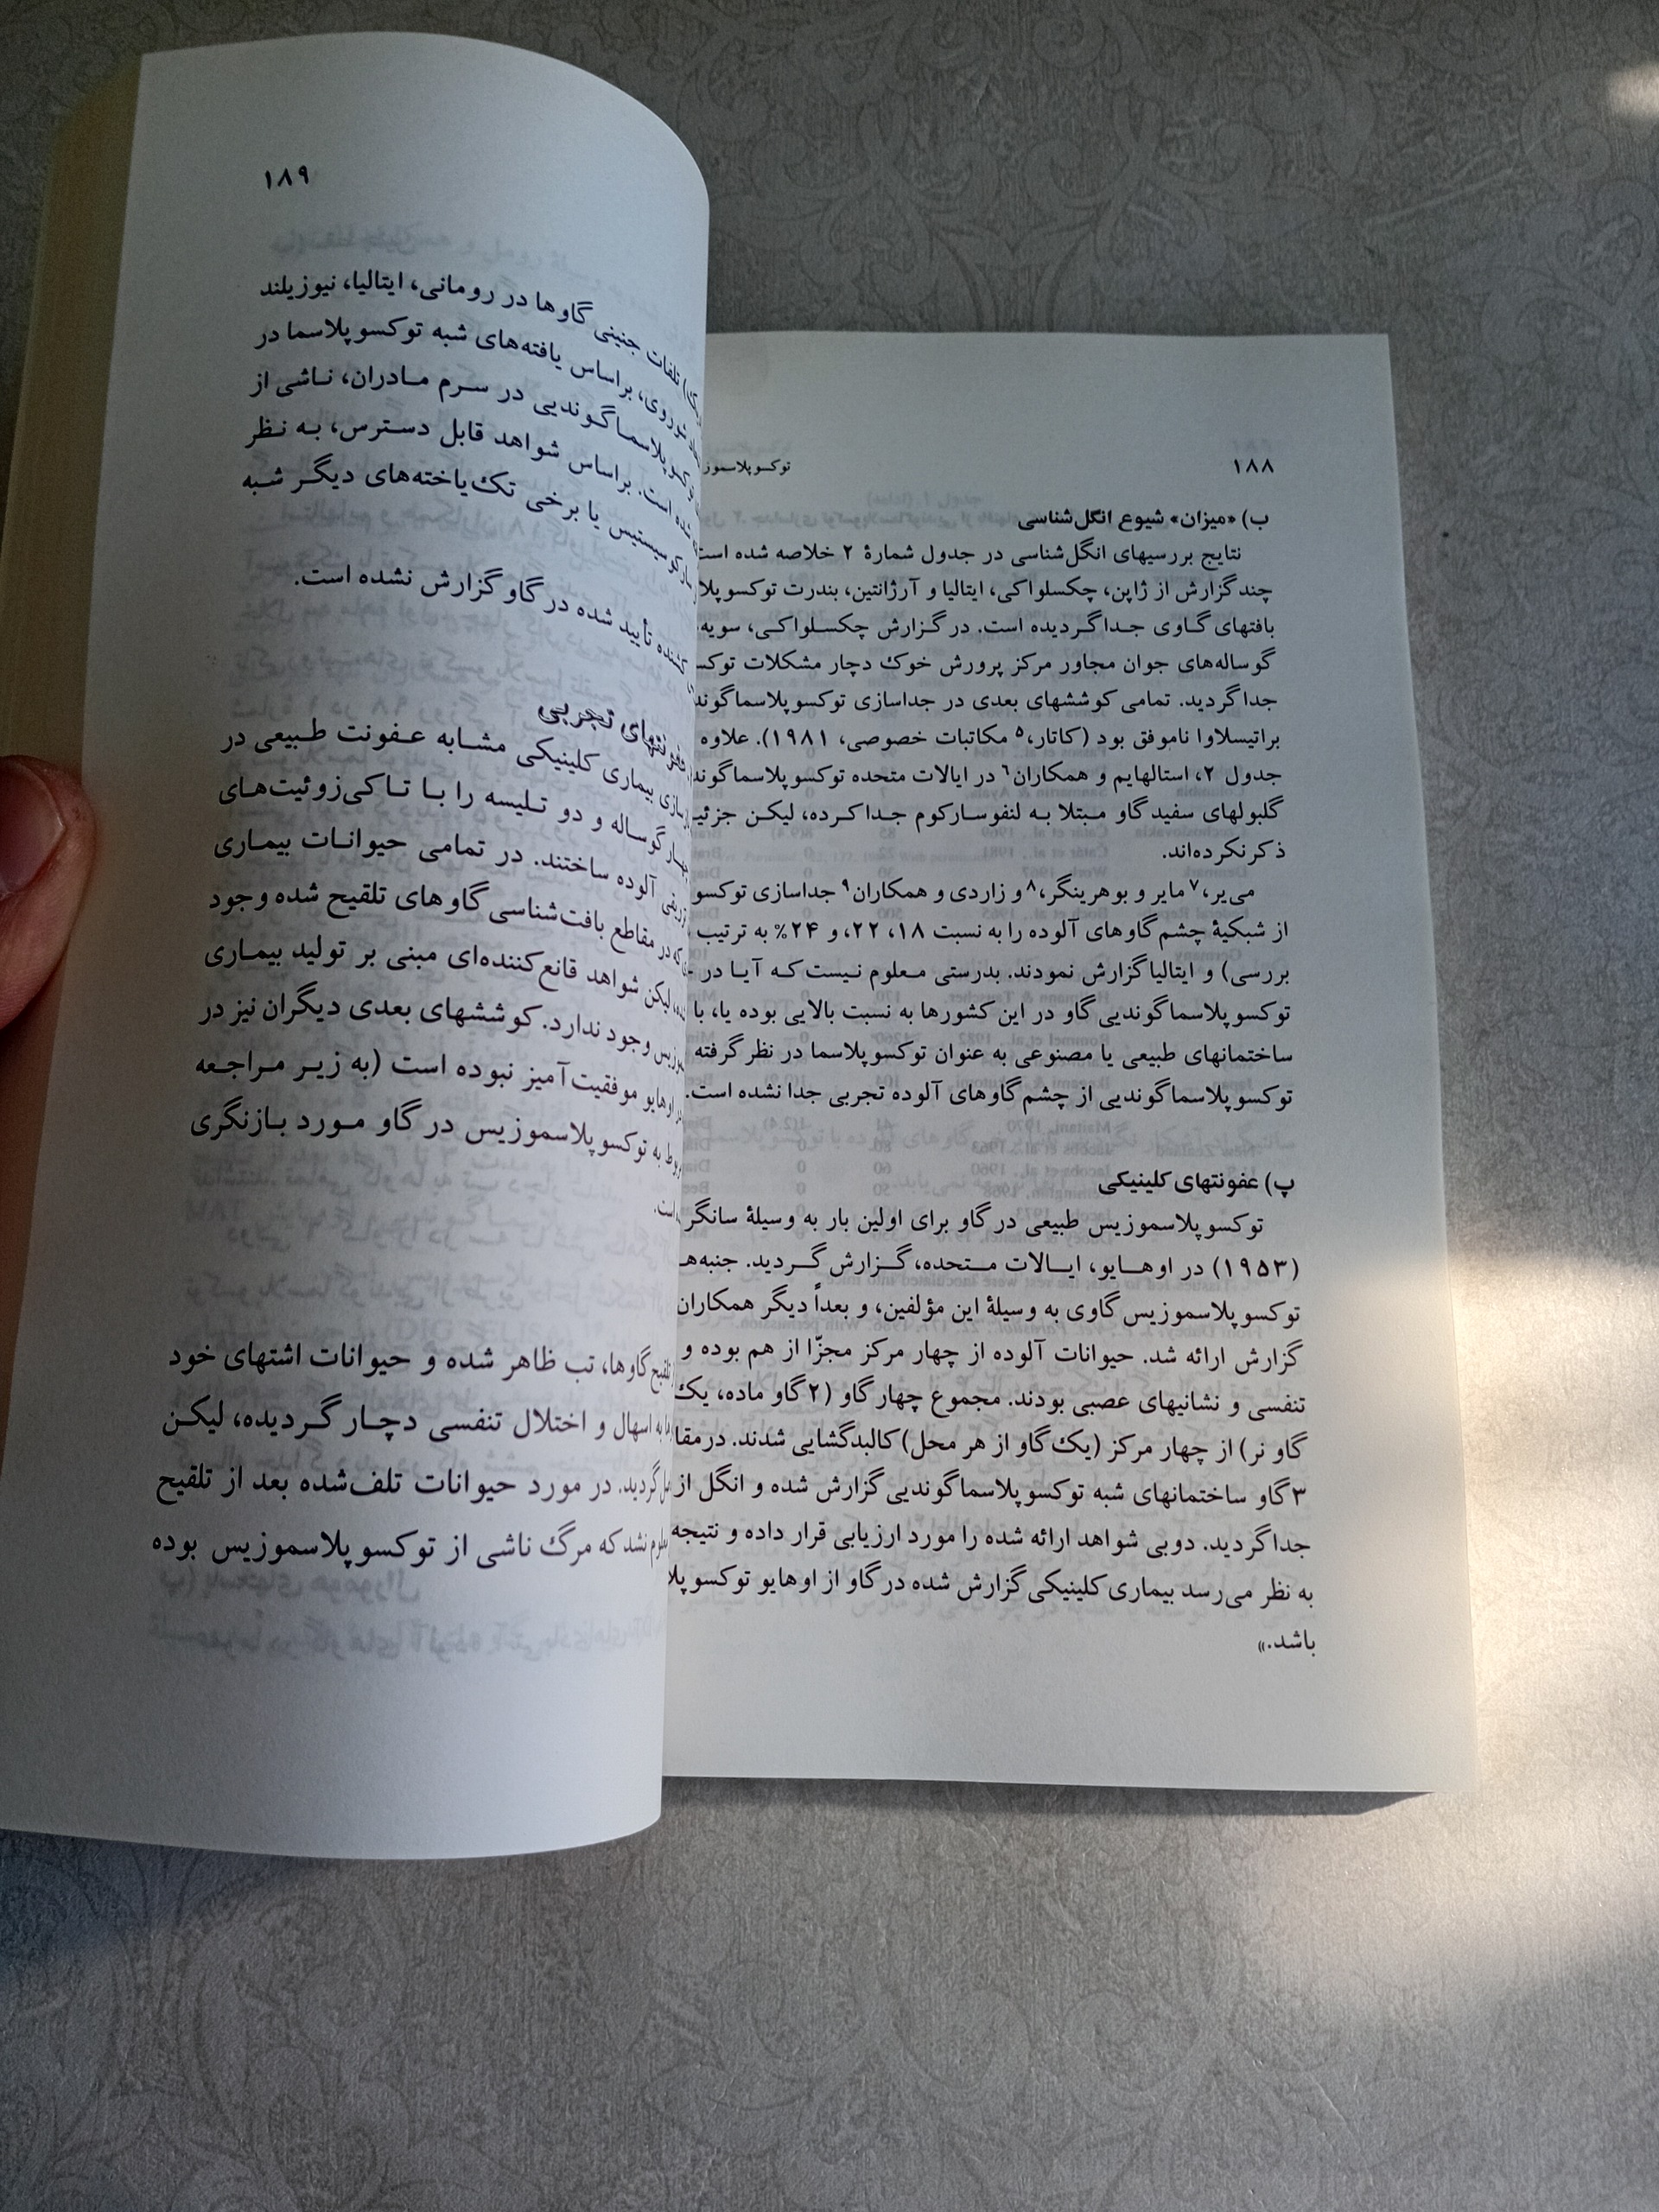 ۱۸۸
توکسوپلاسموز
ب) «میزان» شیوع انگل‌شناسی
نتایج بررسیهای انگل‌شناسی در جدول شمارهٔ ۲ خلاصه شده است
چند گزارش از ژاپن، چکسلواکی، ایتالیا و آرژانتین، بندرت توکسوپلا
بافتهای گاوی جدا گردیده است. در گزارش چکسلواکی، سویه
گوساله‌های جوان مجاور مرکز پرورش خوک دچار مشکلات توکس
جدا گردید. تمامی کوششهای بعدی در جداسازی توکسوپلاسماگوند
براتیسلاوا ناموفق بود (کاتار،۵ مکاتبات خصوصی، ۱۹۸۱). علاوه
جدول ۲، استالهایم و همکاران۶ در ایالات متحده توکسوپلاسماگوند
گلبولهای سفید گاو مبتلا به لنفوسارکوم جدا کرده، لیکن جزئیـ
ذکر نکرده‌اند.
می‌یر،۷ مایر و بوهرینگر،۸ و زاردی و همکاران۹ جداسازی توکسو
از شبکیهٔ چشم گاوهای آلوده را به نسبت ۱۸، ۲۲، و ۲۴% به ترتیب
بررسی) و ایتالیا گزارش نمودند. بدرستی معلوم نیست که آیا در
توکسوپلاسماگوندیی گاو در این کشورها به نسبت بالایی بوده یا، با
ساختمانهای طبیعی یا مصنوعی به عنوان توکسوپلاسما در نظر گرفته
توکسوپلاسماگوندیی از چشم گاوهای آلوده تجربی جدا نشده است.
پ) عفونتهای کلینیکی
توکسوپلاسموزیس طبیعی در گاو برای اولین بار به وسیلهٔ سانگر
(۱۹۵۳) در اوهایو، ایالات متحده، گزارش گردید. جنبه‌هـ
توکسوپلاسموزیس گاوی به وسیلهٔ این مؤلفین، و بعداً دیگر همکاران
گزارش ارائه شد. حیوانات آلوده از چهار مرکز مجزّا از هم بوده و
تنفسی و نشانیهای عصبی بودند. مجموع چهار گاو (۲ گاو ماده، یک
گاو نر) از چهار مرکز (یک گاو از هر محل) کالبدگشایی شدند. در مقا
۳ گاو ساختمانهای شبه توکسوپلاسماگوندیی گزارش شده و انگل از
جدا گردید. دوبی شواهد ارائه شده را مورد ارزیابی قرار داده و نتیجه
به نظر می‌رسد بیماری کلینیکی گزارش شده در گاو از اوهایو توکسوپلا
باشد.»
۱۸۹
تلفات جنینی گاوها در رومانی، ایتالیا، نیوزیلند
شوروی، براساس یافته‌های شبه توکسوپلاسما در
توکسوپلاسماگوندیی در سرم مادران، ناشی از
شده است. براساس شواهد قابل دسترس، به نظر
سارکوسیستیس یا برخی تک‌یاخته‌های دیگر شبه
کننده تأیید شده در گاو گزارش نشده است.
عفونتهای تجربی
سازی بیماری کلینیکی مشابه عفونت طبیعی در
چهار گوساله و دو تلیسه را با تاکی‌زوئیت‌های
تزریقی آلوده ساختند. در تمامی حیوانات بیماری
که در مقاطع بافت‌شناسی گاوهای تلقیح شده وجود
لیکن شواهد قانع‌کننده‌ای مبنی بر تولید بیماری
وجود ندارد. کوششهای بعدی دیگران نیز در
در اوهایو موفقیت‌آمیز نبوده است (به زیر مراجعه
به توکسوپلاسموزیس در گاو مورد بازنگری
است.
تلقیح گاوها، تب ظاهر شده و حیوانات اشتهای خود
به اسهال و اختلال تنفسی دچار گردیده، لیکن
گردید. در مورد حیوانات تلف‌شده بعد از تلقیح
نشد که مرگ ناشی از توکسوپلاسموزیس بوده